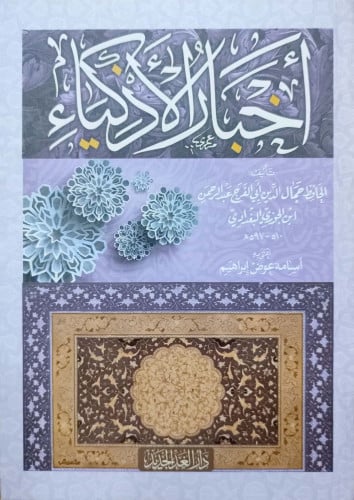 أخبار الأذكياء
تأليف
الحافظ جمال الدين أبي الفرج عبد الرحمن
ابن الجوزي البغدادي
٥١٠ - ٥٩٧ هـ
أسامة عوض إبراهيم
دار الغد الجديد